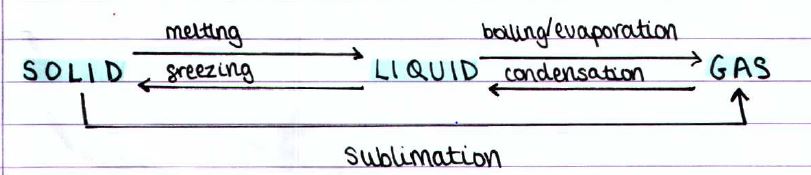 melting boiling/evaporation
SOLID freezing LIQUID condensation GAS
sublimation